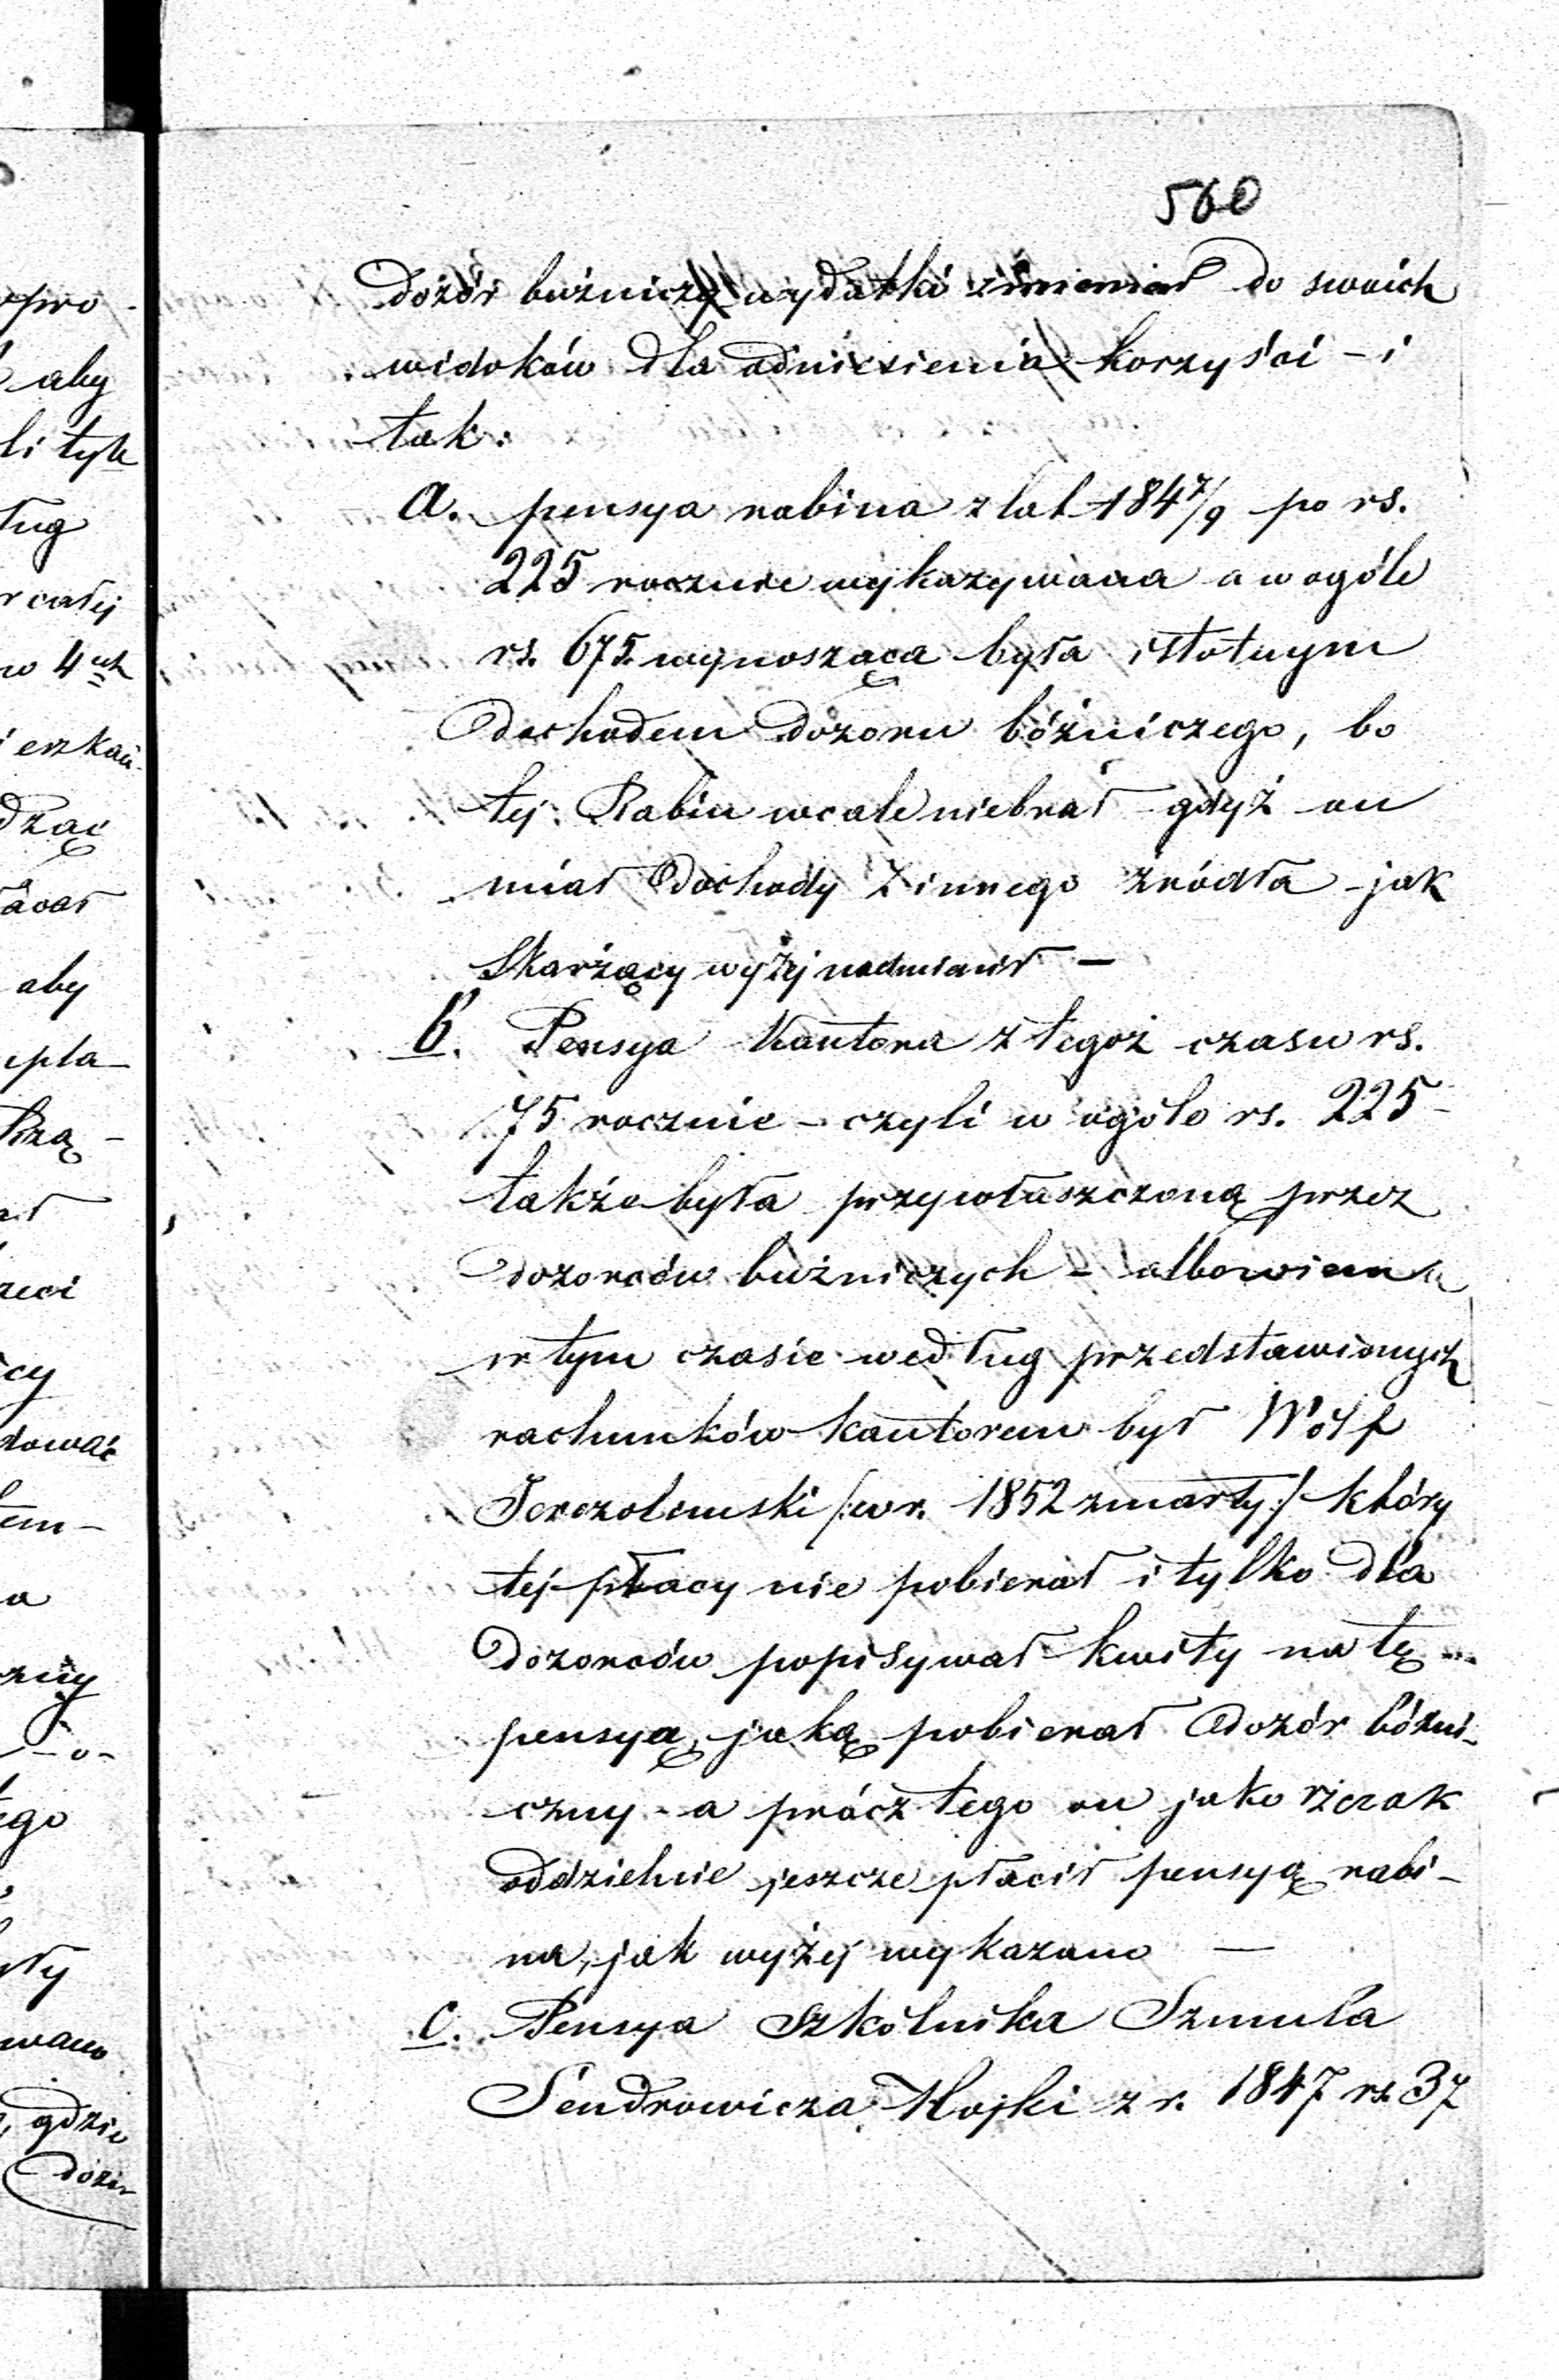 560
Dozór buźniczy wydatki zmieniał do swoich
widoków dla odniesienia korzyści - i
tak:
a. pensya rabina z lat 184 7/9 po rs.
225 rocznie wykazywana a w ogóle
rs. 675. wynosząca była istotnym
dochodem Dozoru bóźniczego, bo
tej Rabin wcale niebrał gdyż on
miał dochody z innego źródła - jak
Skarżący wyżej nadmienił —
b. Pensya Kantora z tegoż czasu rs.
75 rocznie - czyli w ogóle rs. 225 -
także była przywłaszczoną przez
dozorców buźniczych - albowiem
w tym czasie według przedstawionych
rachunków kantorem był Wolf
Jerozolimski /: w r. 1852 zmarły :/ który
tej płacy nie pobierał i tylko dla
Dozorców popisywał kwity na tę
pensyą, jaką pobierał dozór bóźni-
czny - a prócz tego on jako rzezak
oddzielnie jeszcze płacił pensyą rabi-
na, jak wyżej wykazano —
c. Pensya Szkólnika Szmula
Sendrowicza Mojki z r. 1847 rs 37
pro -
aby
li tyle
ług
całej
w 4ch
aby
cy
em -
a
ego
ły
gdzie
Dozór